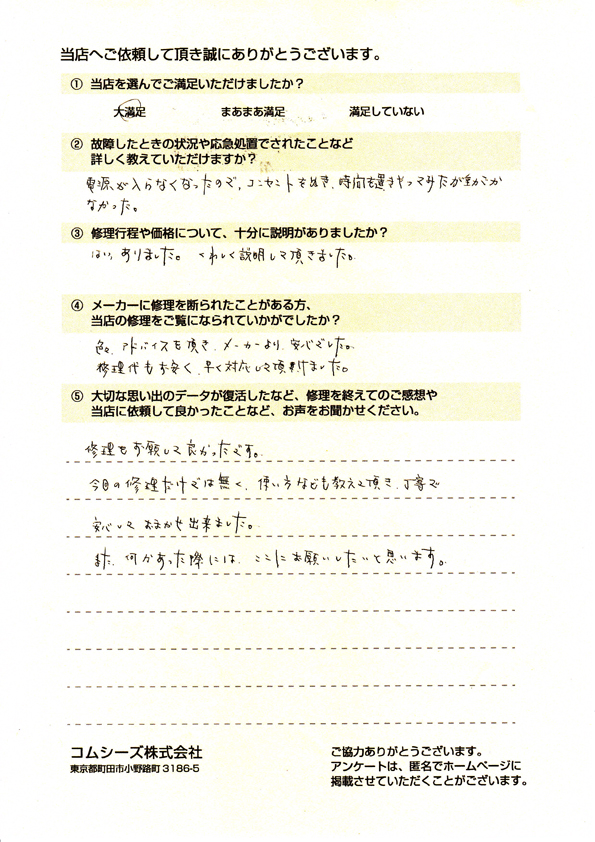 当店へご依頼して頂き誠にありがとうございます。
① 当店を選んでご満足いただけましたか？
大満足 まあまあ満足 満足していない
② 故障したときの状況や応急処置でされたことなど
詳しく教えていただけますか？
電源が入らなくなったので、コンセントをぬき、時間を置きやってみたが動かな
なかった。
③ 修理行程や価格について、十分に説明がありましたか？
はい、ありました。くわしく説明して頂きました。
④ メーカーに修理を断られたことがある方、
当店の修理をご覧になられていかがでしたか？
色々、アドバイスを頂き、メーカーより、安心でした。
修理代もお安く、早く対応して頂けました。
⑤ 大切な思い出のデータが復活したなど、修理を終えてのご感想や
当店に依頼して良かったことなど、お声をお聞かせください。
修理をお願いして良かったです。
今回の修理だけでは無く、使い方なども教えて頂き、丁寧で
安心して おまかせ出来ました。
また、何かあった際には、ここにお願いしたいと思います。
コムシーズ株式会社
東京都町田市小野路町 3186-5
ご協力ありがとうございます。
アンケートは、匿名でホームページに
掲載させていただくことがございます。